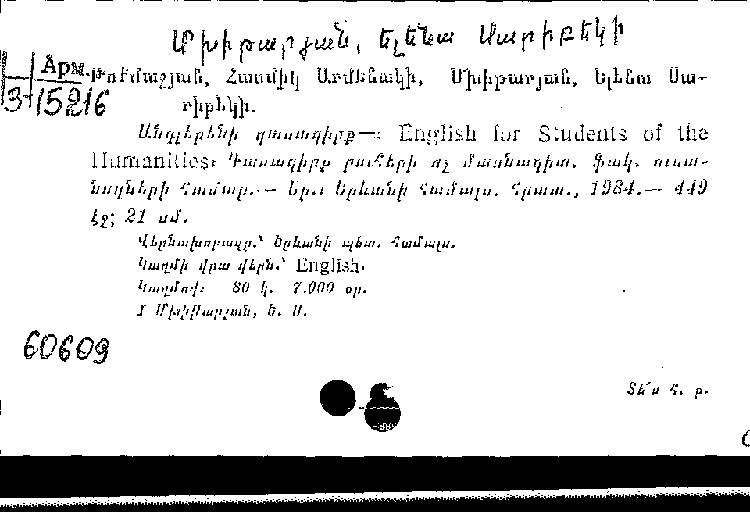 Մխիթարյան, Ելենա Սարիբեկի
Арм.
3-15216
Թումաջյան, Հասմիկ Արմենակի, Մխիթարյան, Ելենա Սա-
րիբեկի.
Անգլերենի դասագիրք=: English for Students of the
Humanities: Դասագիրք բուհերի ոչ մասնագիտ. ֆակ. ուսա-
նողների համար.— Եր.: Երևանի համալս. հրատ., 1984.— 449
էջ; 21 սմ.
Վերնախորագր.՝ Երևանի պետ. համալս.
Կազմի վրա վերն.՝ English.
Կազմով: 80 կ. 7.000 օր.
I Մխիթարյան, Ե. Ս.
60609
Տե՛ս հ. ք.